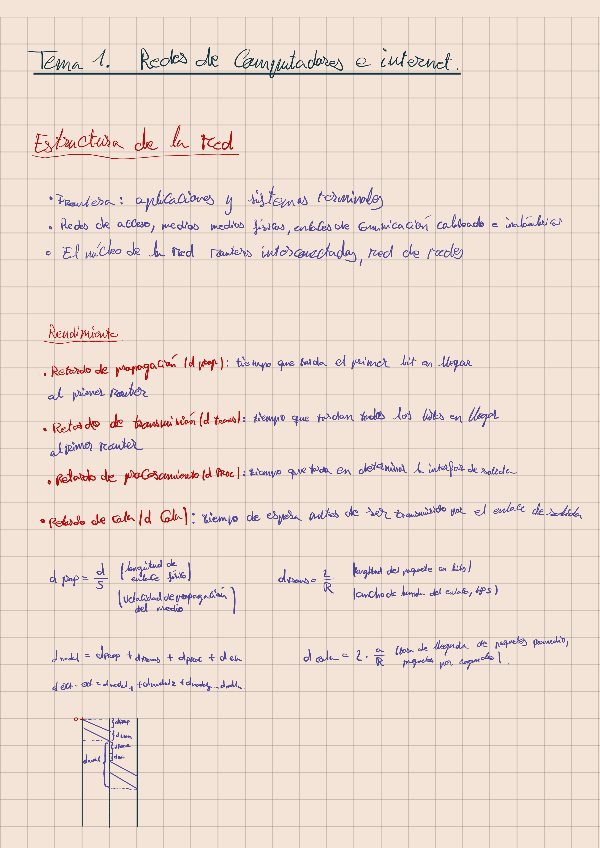 Tema 1. Redes de Computadores e internet.
Estructura de la red
• Frontera: aplicaciones y sistemas terminales
• Redes de acceso, medios medios físicos, enlaces de comunicación cableado e inalámbrico
• El núcleo de la red routers interconectados, red de redes
Rendimiento
• Retardo de propagación (d prop): tiempo que tarda el primer bit en llegar
al primer router
• Retardo de transmisión (d trans): tiempo que tardan todos los bits en llegar
al primer router
• Retardo de procesamiento (d Proc): tiempo que tarda en determinar la interfaz de salida
• Retardo de cola (d Cola): tiempo de espera antes de ser transmitido por el enlace de salida
d prop = d/S (longitud de enlace físico) (velocidad de propagación del medio)
d trans = L/R (longitud del paquete en bits) (ancho de banda del enlace, bps)
d nodal = d prop + d trans + d proc + d cola
d cola = L · a/R (tasa de llegada de paquetes promedio, paquetes por segundo).
d ext-ext = d nodal1 + d nodal2 + d nodal3
d prop
d tran
d proce
d nodal